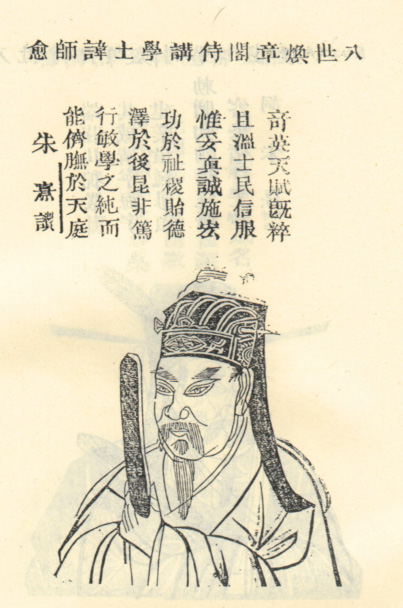 八世煥章閣侍講學士諱師愈
竒英天賦旣粹
且溫士民信服
惟妥眞誠施宏
功於祉稷貽德
澤於後昆非篤
行敏學之純而
能儕膴於天庭
朱熹讚